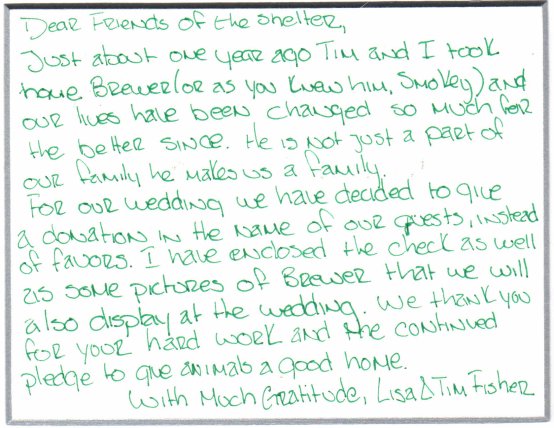 Dear Friends of the shelter,
Just about one year ago Tim and I took
home Brewer (or as you knew him, Smokey) and
our lives have been changed so much for
the better since. He is not just a part of
our family he makes us a family.
For our wedding we have decided to give
a donation in the name of our guests, instead
of favors. I have enclosed the check as well
as some pictures of Brewer that we will
also display at the wedding. We thank you
for your hard work and the continued
pledge to give animals a good home.
With Much Gratitude, Lisa & Tim Fisher